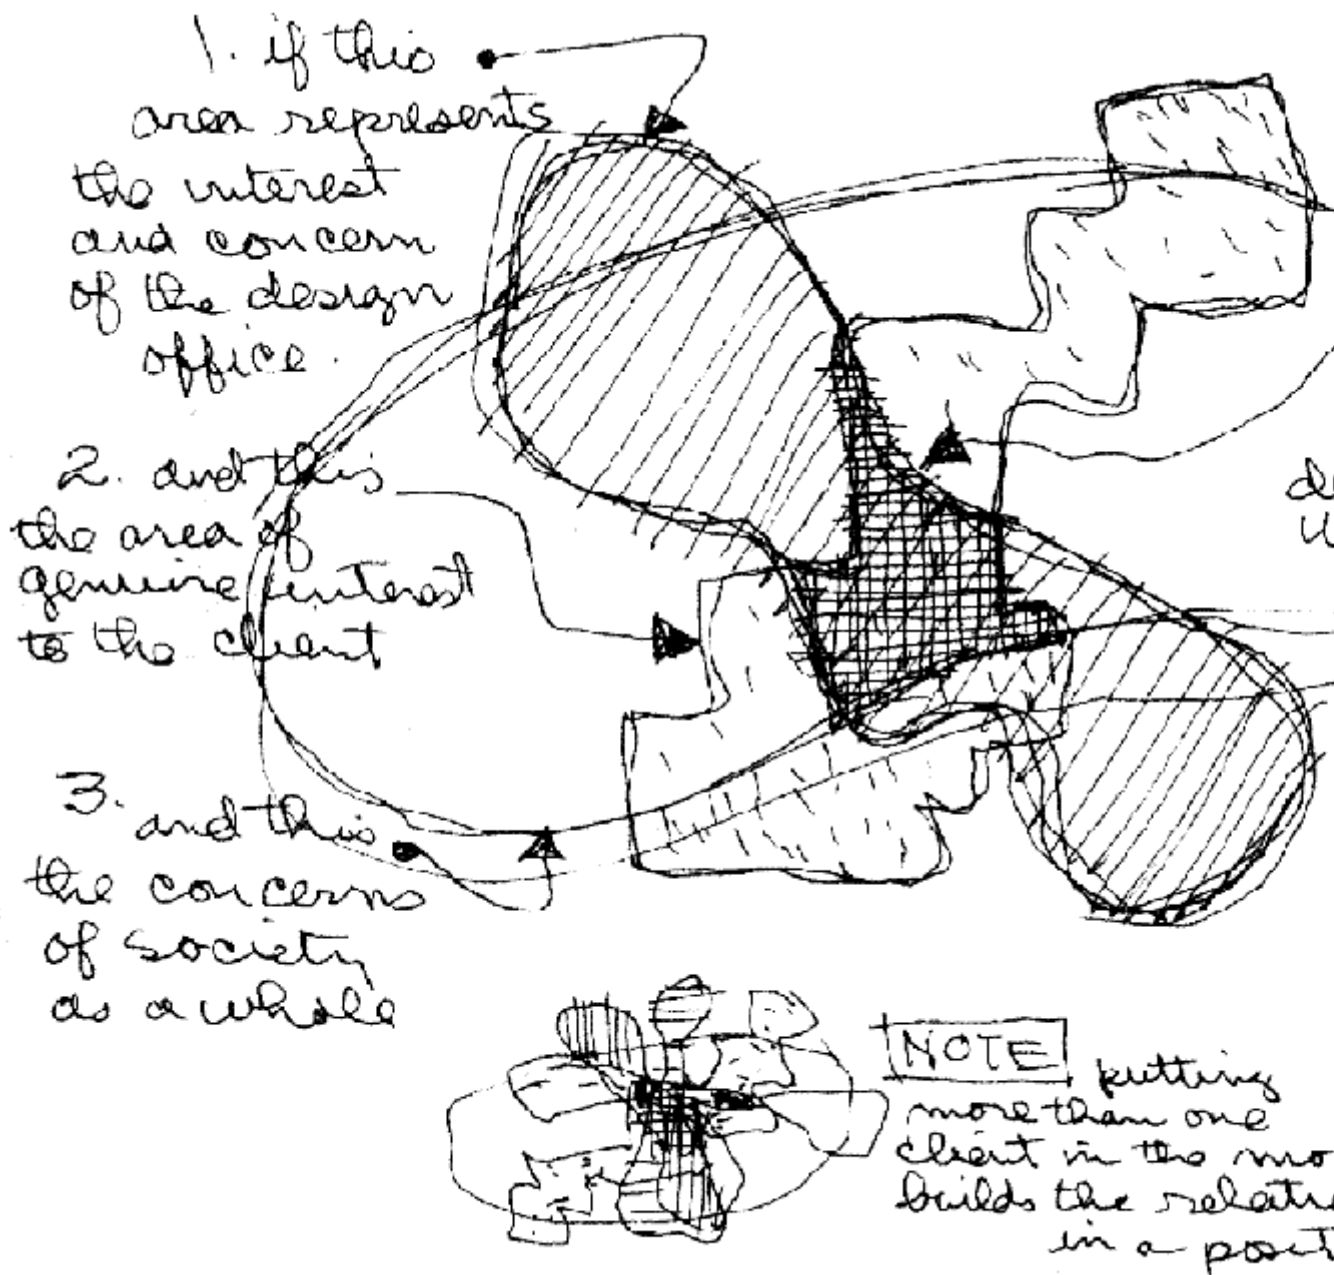 1. if this
area represents
the interest
and concern
of the design
office.
2. and this
the area of
genuine interest
to the client
3. and this
the concerns
of society
as a whole
NOTE putting
more than one
client in the
builds the
in a